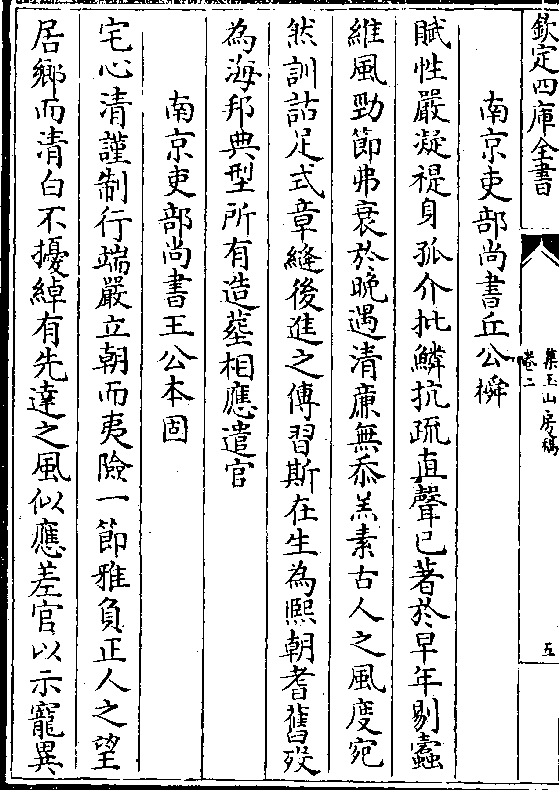 欽定四庫全書
集玉山房稿
卷二
五
南京吏部尚書丘公橓
賦性嚴凝禔身孤介批鱗抗疏直聲已著於早年剔蠹
維風勁節弗衰於晚遇清亷無忝羔素古人之風度宛
然訓詁足式章縫後進之傅習斯在生為熙朝耆舊殁
為海邦典型所有造塟相應遣官
南京吏部尚書王公本固
宅心清謹制行端嚴立朝而夷險一節雅負正人之望
居鄉而清白不擾綽有先達之風似應差官以示寵異